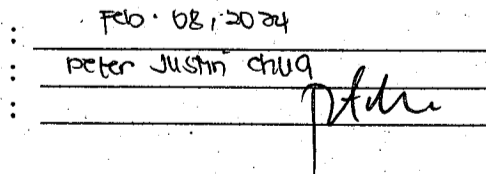 : Feb. 08, 2024
: Peter Justin Chua
: